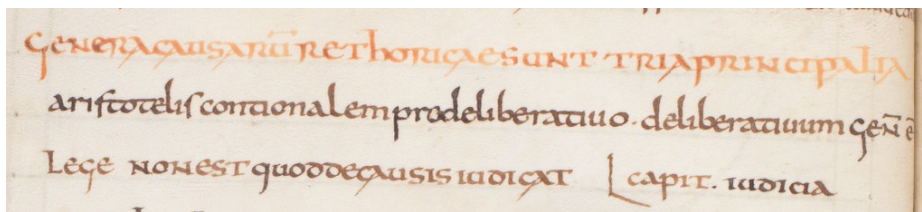 GENERA CAUSARŪ RETHORICAE SUNT TRIA PRINCIPALIA
aristotelis contionalem pro deliberatiuo · deliberatiuum GEÑ ē
Lege NON EST quod de causis iudicat capit. iudicia